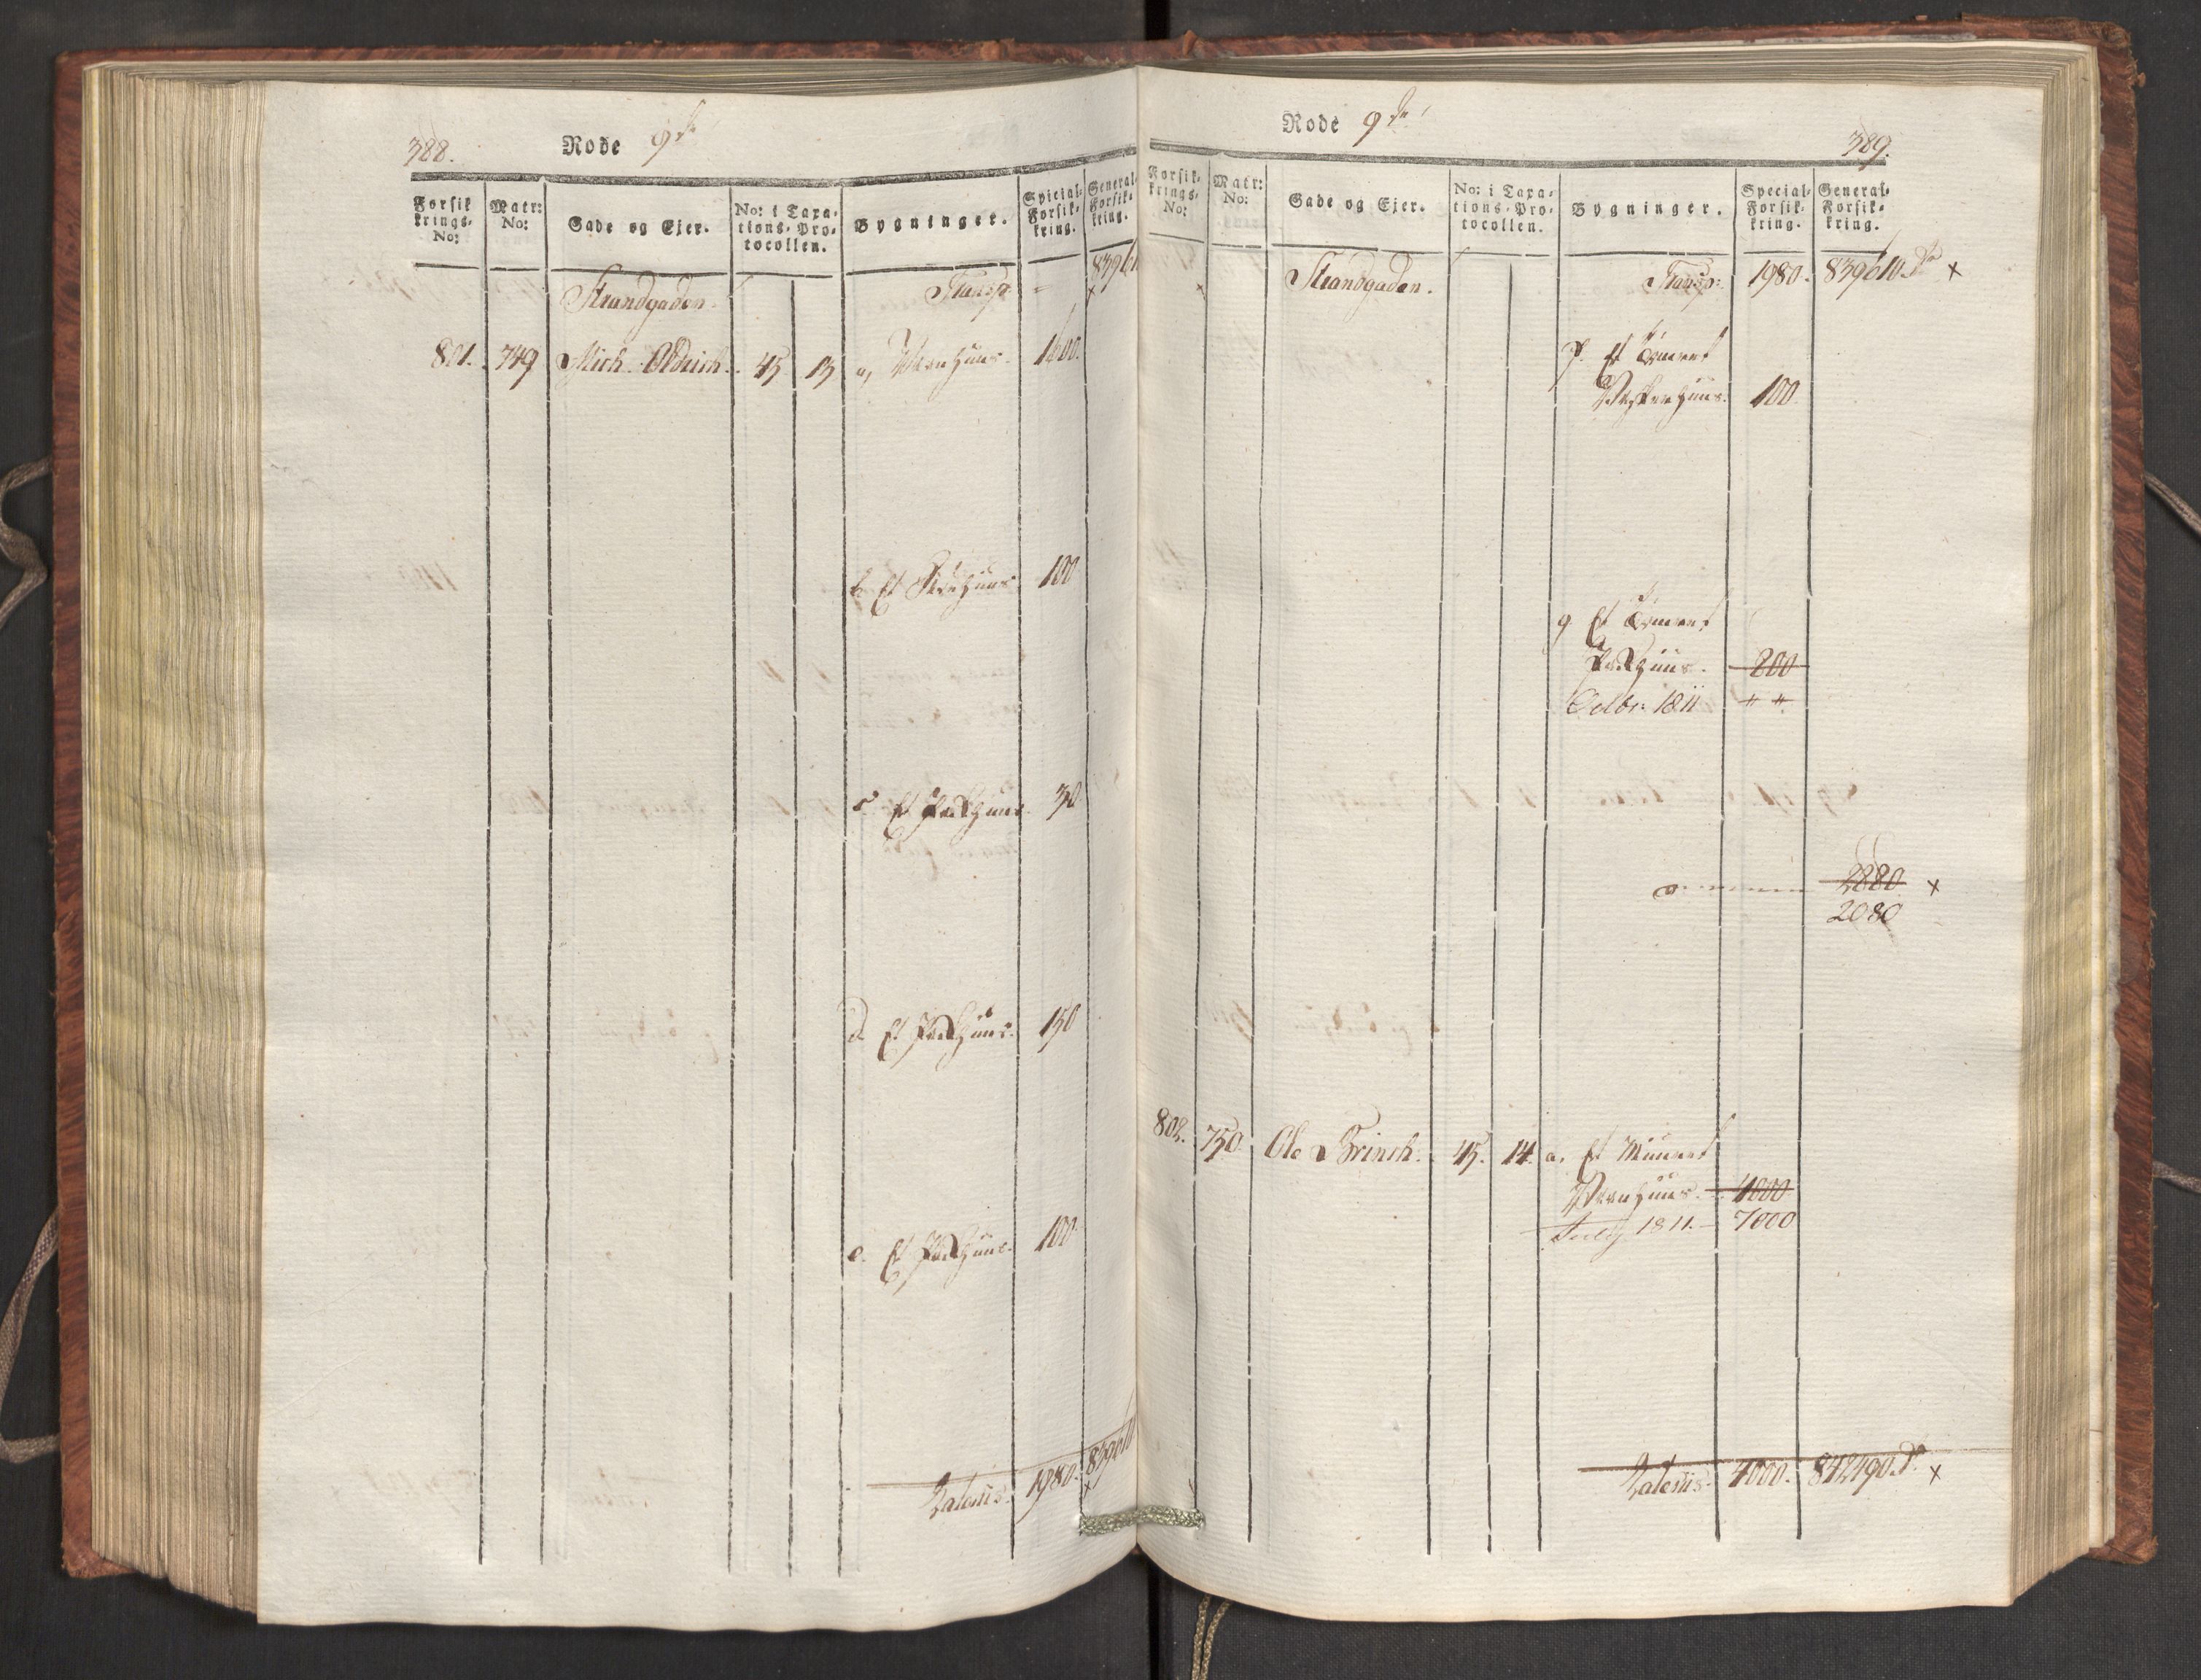 388.
Rode 9de
Forsik
krings-
No:
Matr:
No:
Gade og Ejer.
No: i Taxa-
tions-Pro-
tocollen.
Bygninger.
Special-
Forsik-
kring.
General-
Forsik-
kring.
Strandgaden.
Transp:
83961
801. 749 Mich. Oldrich. 45 13 a, Vaanhuus. 1600.
b. Et 100
c. Et Pakhuus. 30
d. Et Pakhuus. 150
e. Et Pakhuus. 100
Lateris: 1980. 83961
Rode 9de
389.
Forsik-
krings-
No:
Matr:
No:
Gade og Ejer.
No: i Taxa-
tions-Pro-
tocollen.
Bygninger.
Special-
Forsik-
kring.
General-
Forsik-
kring.
Strandgaden.
Transp: 1980. 839610. x
f. Et
100.
g. Et
Pakhuus. 200
Octbr: 1811 " "
2280 x
2080
802. 750. Ole Brinch. 45. 14. a. Et Muuret
Vaanhuus. 4000
July 1811. 7000
Lateris: 4000. 842490. x